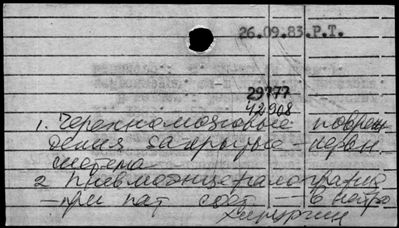 26.09.83.Р.Т.
29777
42908
1. Черепномозговые повреж
дения закрытые - нервн.
система
2 Пневмоэнцефалография
- при пат сост - в нейро
хирургии